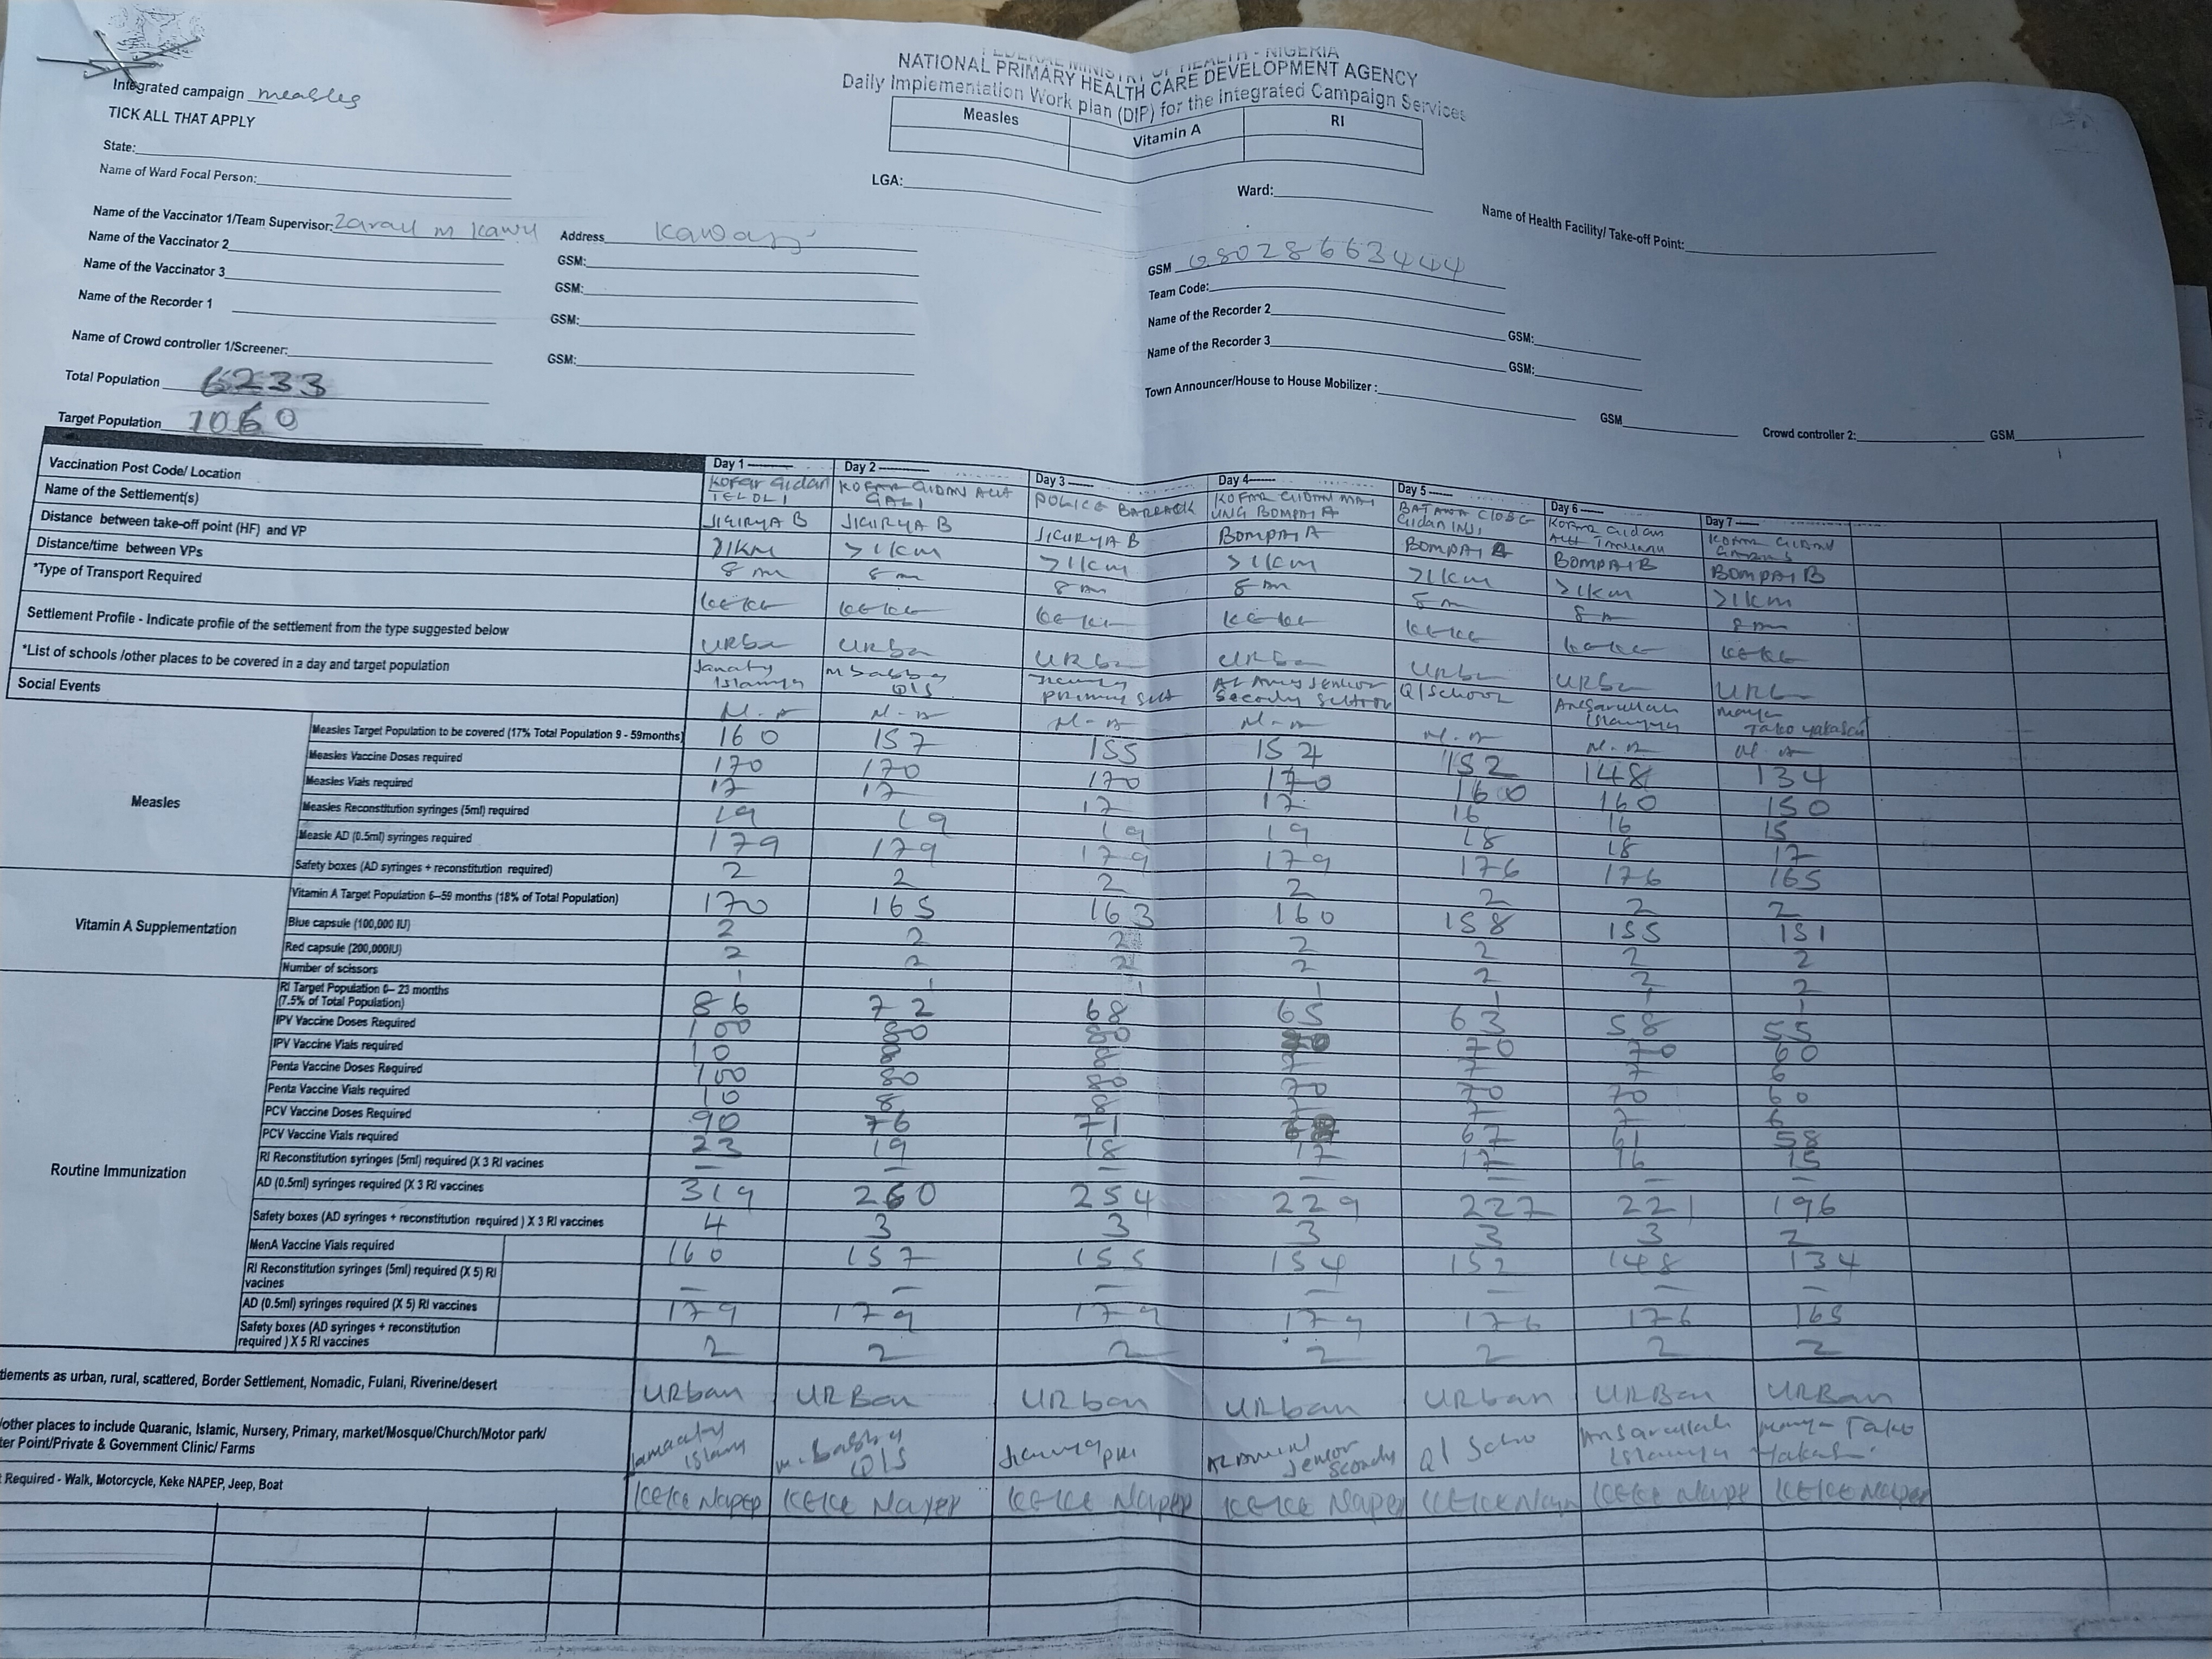 FEDERAL MINISTRY OF HEALTH - NIGERIA
NATIONAL PRIMARY HEALTH CARE DEVELOPMENT AGENCY
Daily Implementation Work plan (DIP) for the Integrated Campaign Services
Integrated campaign measles
TICK ALL THAT APPLY
Measles Vitamin A RI
State:
Name of Ward Focal Person:
LGA:
Ward:
Name of Health Facility/ Take-off Point:
Name of the Vaccinator 1/Team Supervisor: m Address GSM 08028663444
Name of the Vaccinator 2 GSM: Team Code:
Name of the Vaccinator 3 GSM: Name of the Recorder 2 GSM:
Name of the Recorder 1 GSM: Name of the Recorder 3 GSM:
Name of Crowd controller 1/Screener: GSM: Town Announcer/House to House Mobilizer : GSM Crowd controller 2: GSM
Total Population 6233
Target Population 1060
Day 1 Day 2 Day 3 Day 4 Day 5 Day 6 Day 7
Vaccination Post Code/ Location KOFAR GIDAN KOFAR GIDAN GALI POLICE BARRACK KOFAR GIDAN MAI UNG BOMPAI A Gidan KOFAR Gidan KOFAR GIDAN
Name of the Settlement(s) JIGIRYA B JIGIRYA B JIGIRYA B BOMPAI A BOMPAI A BOMPAI B BOMPAI B
Distance between take-off point (HF) and VP >1KM >1km >1km >1km >1km >1km >1km
Distance/time between VPs 8m 8m 8m 8m 8m 8m 8m
*Type of Transport Required KEKE KEKE KEKE KEKE KEKE KEKE KEKE
Settlement Profile - Indicate profile of the settlement from the type suggested below URba URba URba URba URba URba
*List of schools /other places to be covered in a day and target population Islamiya QIS Primary Secondy QI School Ansarullah Islamiyya Tako Yakasai
Social Events N.A N.A N.A N.A N.A N.A N.A
Measles
Measles Target Population to be covered (17% Total Population 9 - 59months) 160 157 155 154 152 148 134
Measles Vaccine Doses required 170 170 170 170 160 160 150
Measles Vials required 17 17 17 17 16 16 15
Measles Reconstitution syringes (5ml) required 19 19 19 19 18 18 17
Measle AD (0.5ml) syringes required 179 179 179 179 176 176 165
Safety boxes (AD syringes + reconstitution required) 2 2 2 2 2 2 2
Vitamin A Supplementation
Vitamin A Target Population 6-59 months (18% of Total Population) 170 165 163 160 158 155 151
Blue capsule (100,000 IU) 2 2 2 2 2 2 2
Red capsule (200,000IU) 2 2 2 2 2 2 2
Number of scissors 1 1 1 1 1 1 1
Routine Immunization
RI Target Population 0- 23 months (7.5% of Total Population) 86 72 68 65 63 58 55
IPV Vaccine Doses Required 100 80 80 70 70 60
IPV Vaccine Vials required 10 8 8 7 7 7 6
Penta Vaccine Doses Required 100 80 80 70 70 70 60
Penta Vaccine Vials required 10 8 8 7 7 7 6
PCV Vaccine Doses Required 90 76 71 67 61 58
PCV Vaccine Vials required 23 19 18 17 17 16 15
RI Reconstitution syringes (5ml) required (X 3 RI vacines — — — — — — —
AD (0.5ml) syringes required (X 3 RI vaccines 319 260 254 229 227 221 196
Safety boxes (AD syringes + reconstitution required ) X 3 RI vaccines 4 3 3 3 3 3 2
MenA Vaccine Vials required 160 157 155 154 152 148 134
RI Reconstitution syringes (5ml) required (X 5) RI vacines — — — — — — —
AD (0.5ml) syringes required (X 5) RI vaccines 179 179 179 179 176 176 165
Safety boxes (AD syringes + reconstitution required ) X 5 RI vaccines 2 2 2 2 2 2 2
tlements as urban, rural, scattered, Border Settlement, Nomadic, Fulani, Riverine/desert URban URBan URban URban URban URBan URBan
/other places to include Quaranic, Islamic, Nursery, Primary, market/Mosque/Church/Motor park/
ter Point/Private & Government Clinic/ Farms QIS QI Scho Ansarullah Islamiyya Tako
t Required - Walk, Motorcycle, Keke NAPEP, Jeep, Boat KEKE Napep KEKE Napep KEKE Napep KEKE Napep KEKE KEKE Nape KEKE Napep